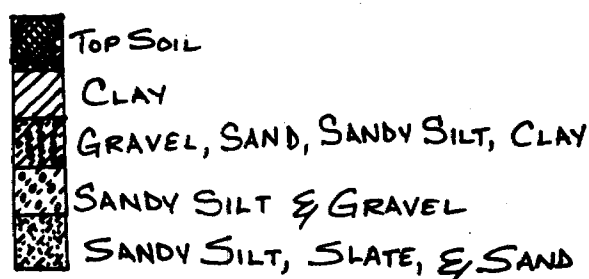 TOP SOIL
CLAY
GRAVEL, SAND, SANDY SILT, CLAY
SANDY SILT & GRAVEL
SANDY SILT, SLATE, & SAND